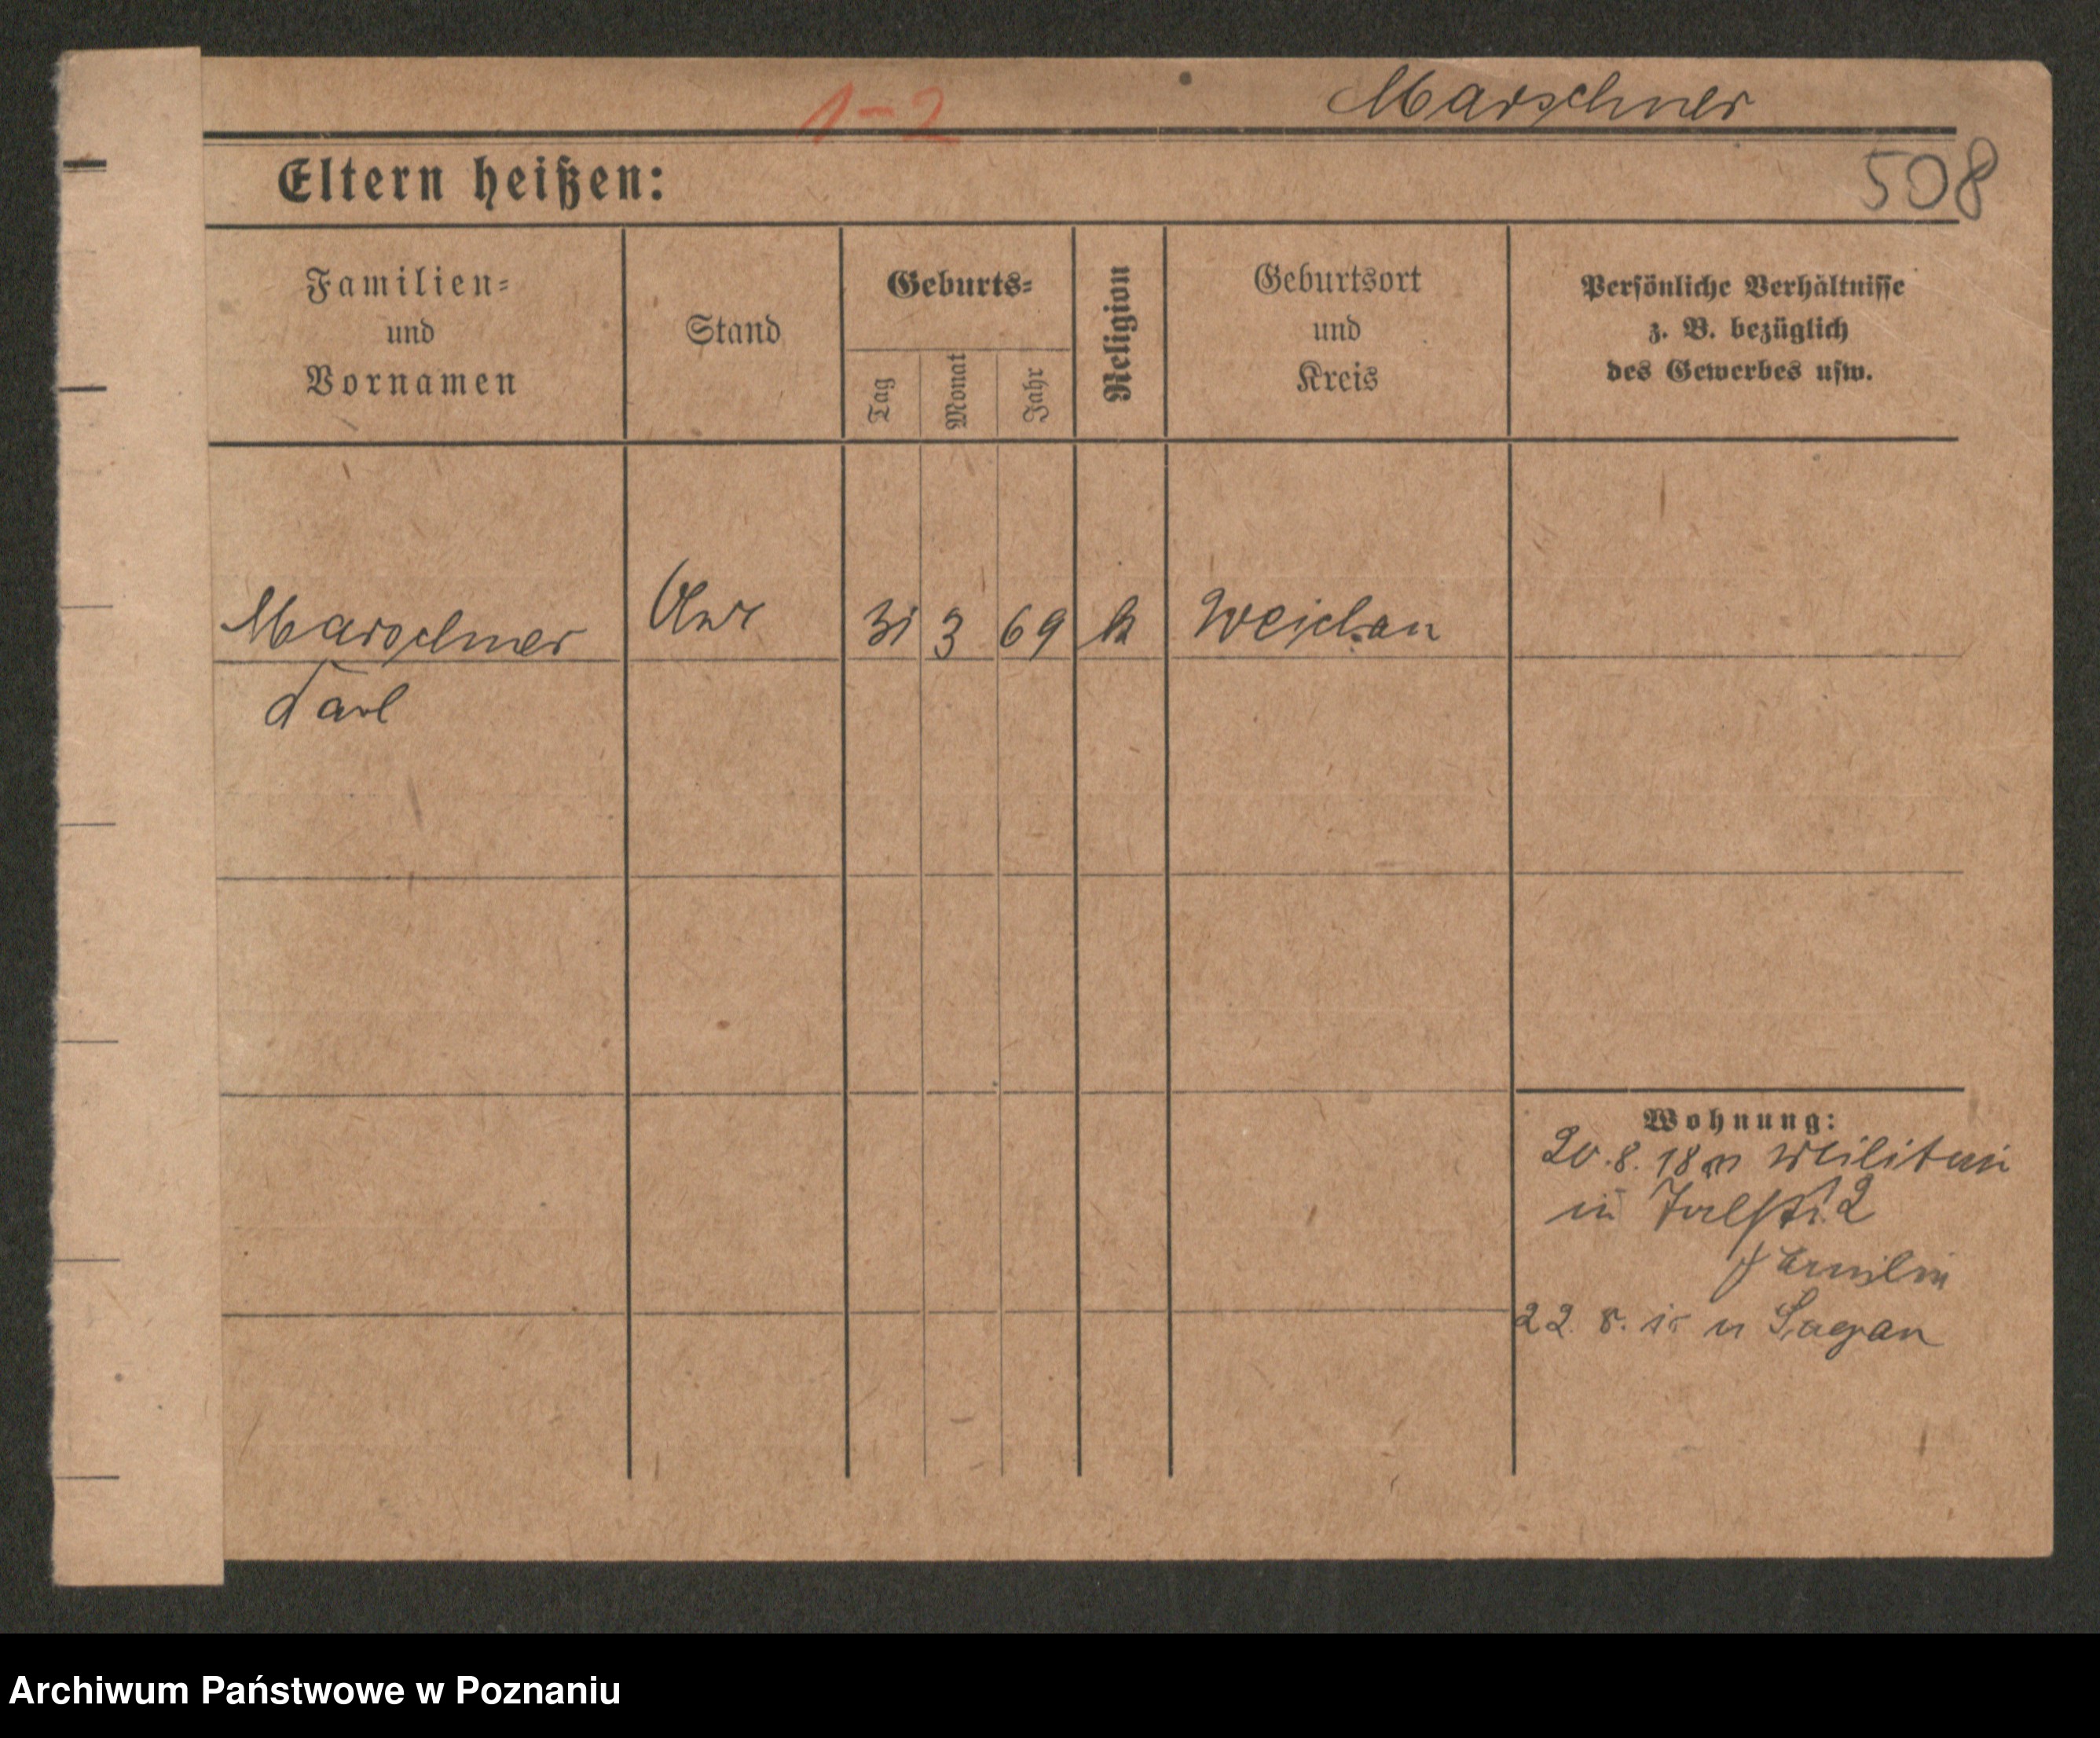 1-2
Marschner
508
Eltern heißen:
Familien-
und
Vornamen
Stand
Geburts-
Tag
Monat
Jahr
Religion
Geburtsort
und
Kreis
Persönliche Verhältnisse
z. B. bezüglich
des Gewerbes usw.
Marschner
31 3 69 k Weichau
Carl
Wohnung:
20. 8. 18
in 2
Familie
22. 8. 18 n Sagan
Archiwum Państwowe w Poznaniu